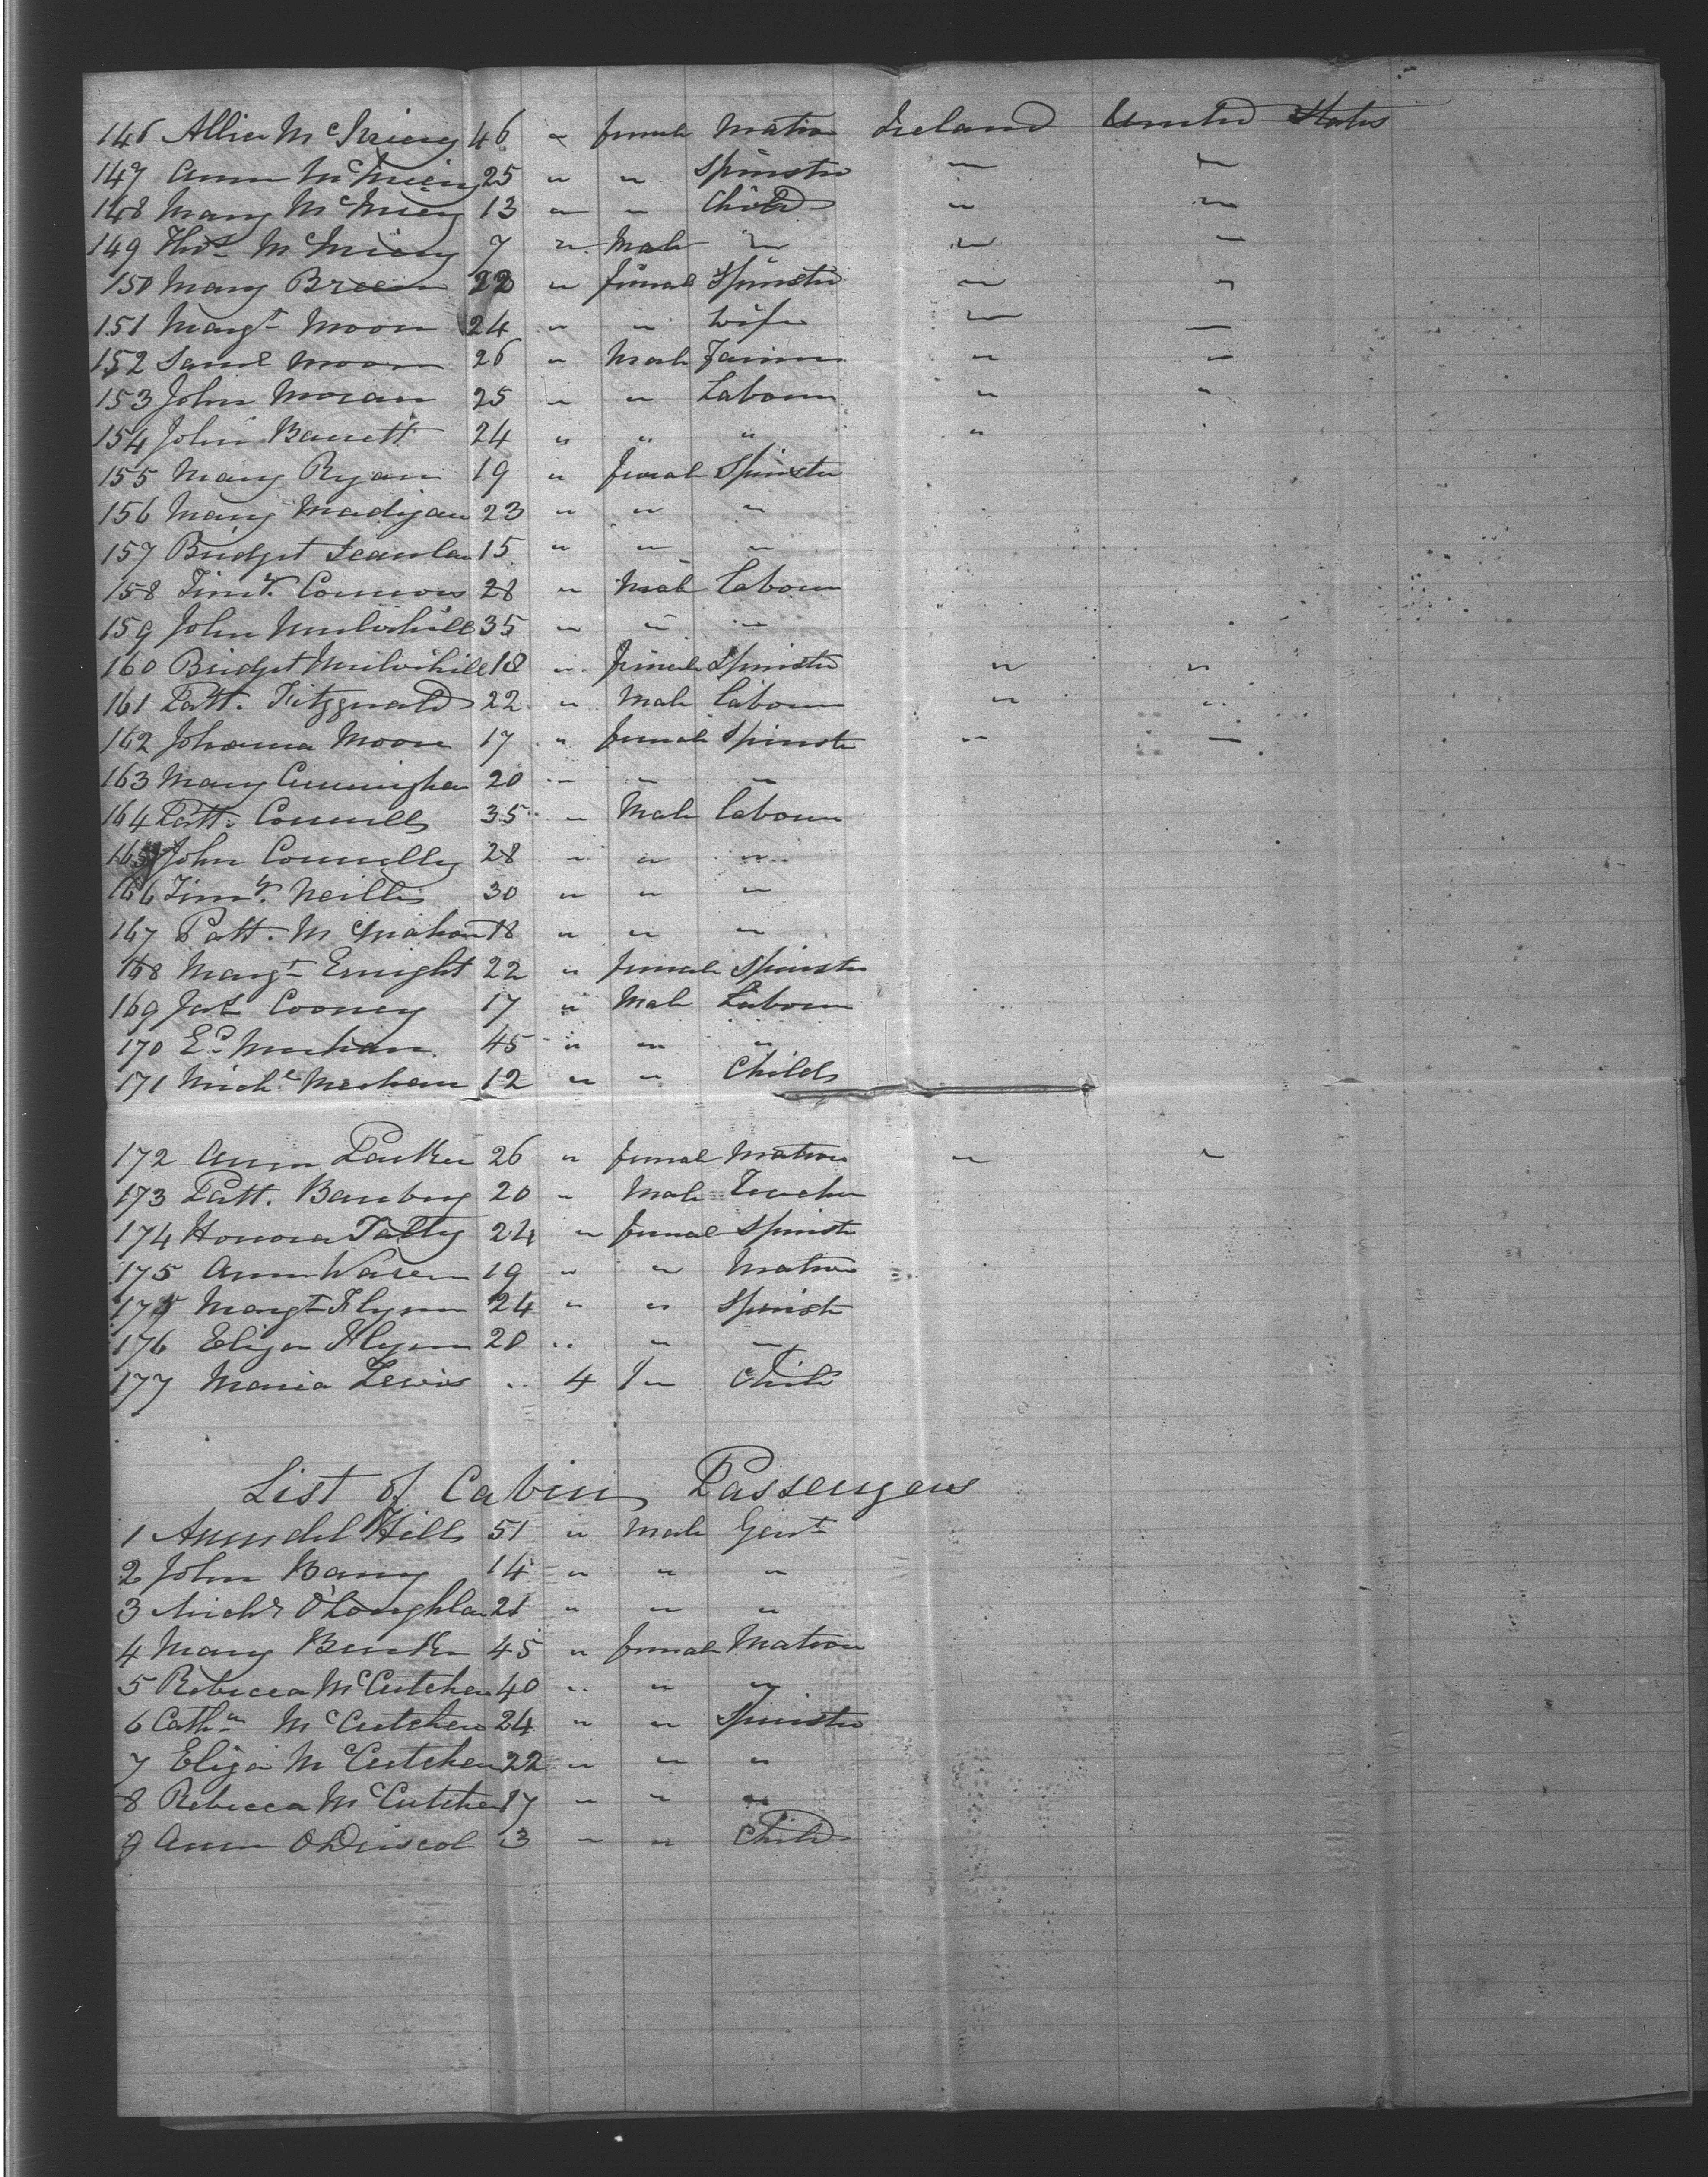 146 Allice McInieny 46 " female Matron Ireland United States
147 Ann McInieny 25 " " Spinster " "
148 Mary McInieny 13 " " Child " "
149 Thos McInieny 7 " Male " " "
150 Mary Breen 22 " female Spinster " "
151 Margt Moon 24 " " Wife " "
152 Saml Moon 26 " Male Farmer " "
153 John Moran 25 " " Labourer " "
154 John Barrett 24 " " " "
155 Mary Ryan 19 " female Spinster
156 Mary Madigan 23 " " "
157 Bridget Scanlan 15 " " "
158 Timy. Connors 28 " Male Labourer
159 John Mulvihill 35 " " "
160 Bridget Mulvihill 18 " female Spinster " "
161 Patt. Fitzgerald 22 " Male Labourer " "
162 Johanna Moore 17 " female Spinster " "
163 Mary Cunningham 20 " " "
164 Patt. Connell 35 " Male Labourer
165 John Connelly 28 " " "
166 Timy. Neillis 30 " " "
167 Patt. McMahon 18 " " "
168 Margt Enright 22 " female Spinster
169 Jas Cooney 17 " Male Labourer
170 Ed Meehan 45 " " "
171 Michl Meehan 12 " " Child
172 Ann Parker 26 " female Matron " "
173 Patt. Banbury 20 " Male Teacher
174 Honora Tally 24 " female Spinster
175 Ann Waren 19 " " Matron
175 Margt Flynn 24 " " Spinster
176 Eliza Flynn 20 " " "
177 Maria Lewis " 4 " Child
List of Cabin Passengers
1 Arundel Hill 51 " Male Gent
2 John Barry 14 " " "
3 Michl O'Loughlan 21 " " "
4 Mary Burke 45 " female Matron
5 Rebecca McCutchen 40 " " "
6 Cathn McCutchen 24 " " Spinster
7 Eliza McCutchen 22 " " "
8 Rebecca McCutchen 17 " " "
9 Ann O'Driscol 3 " " Child